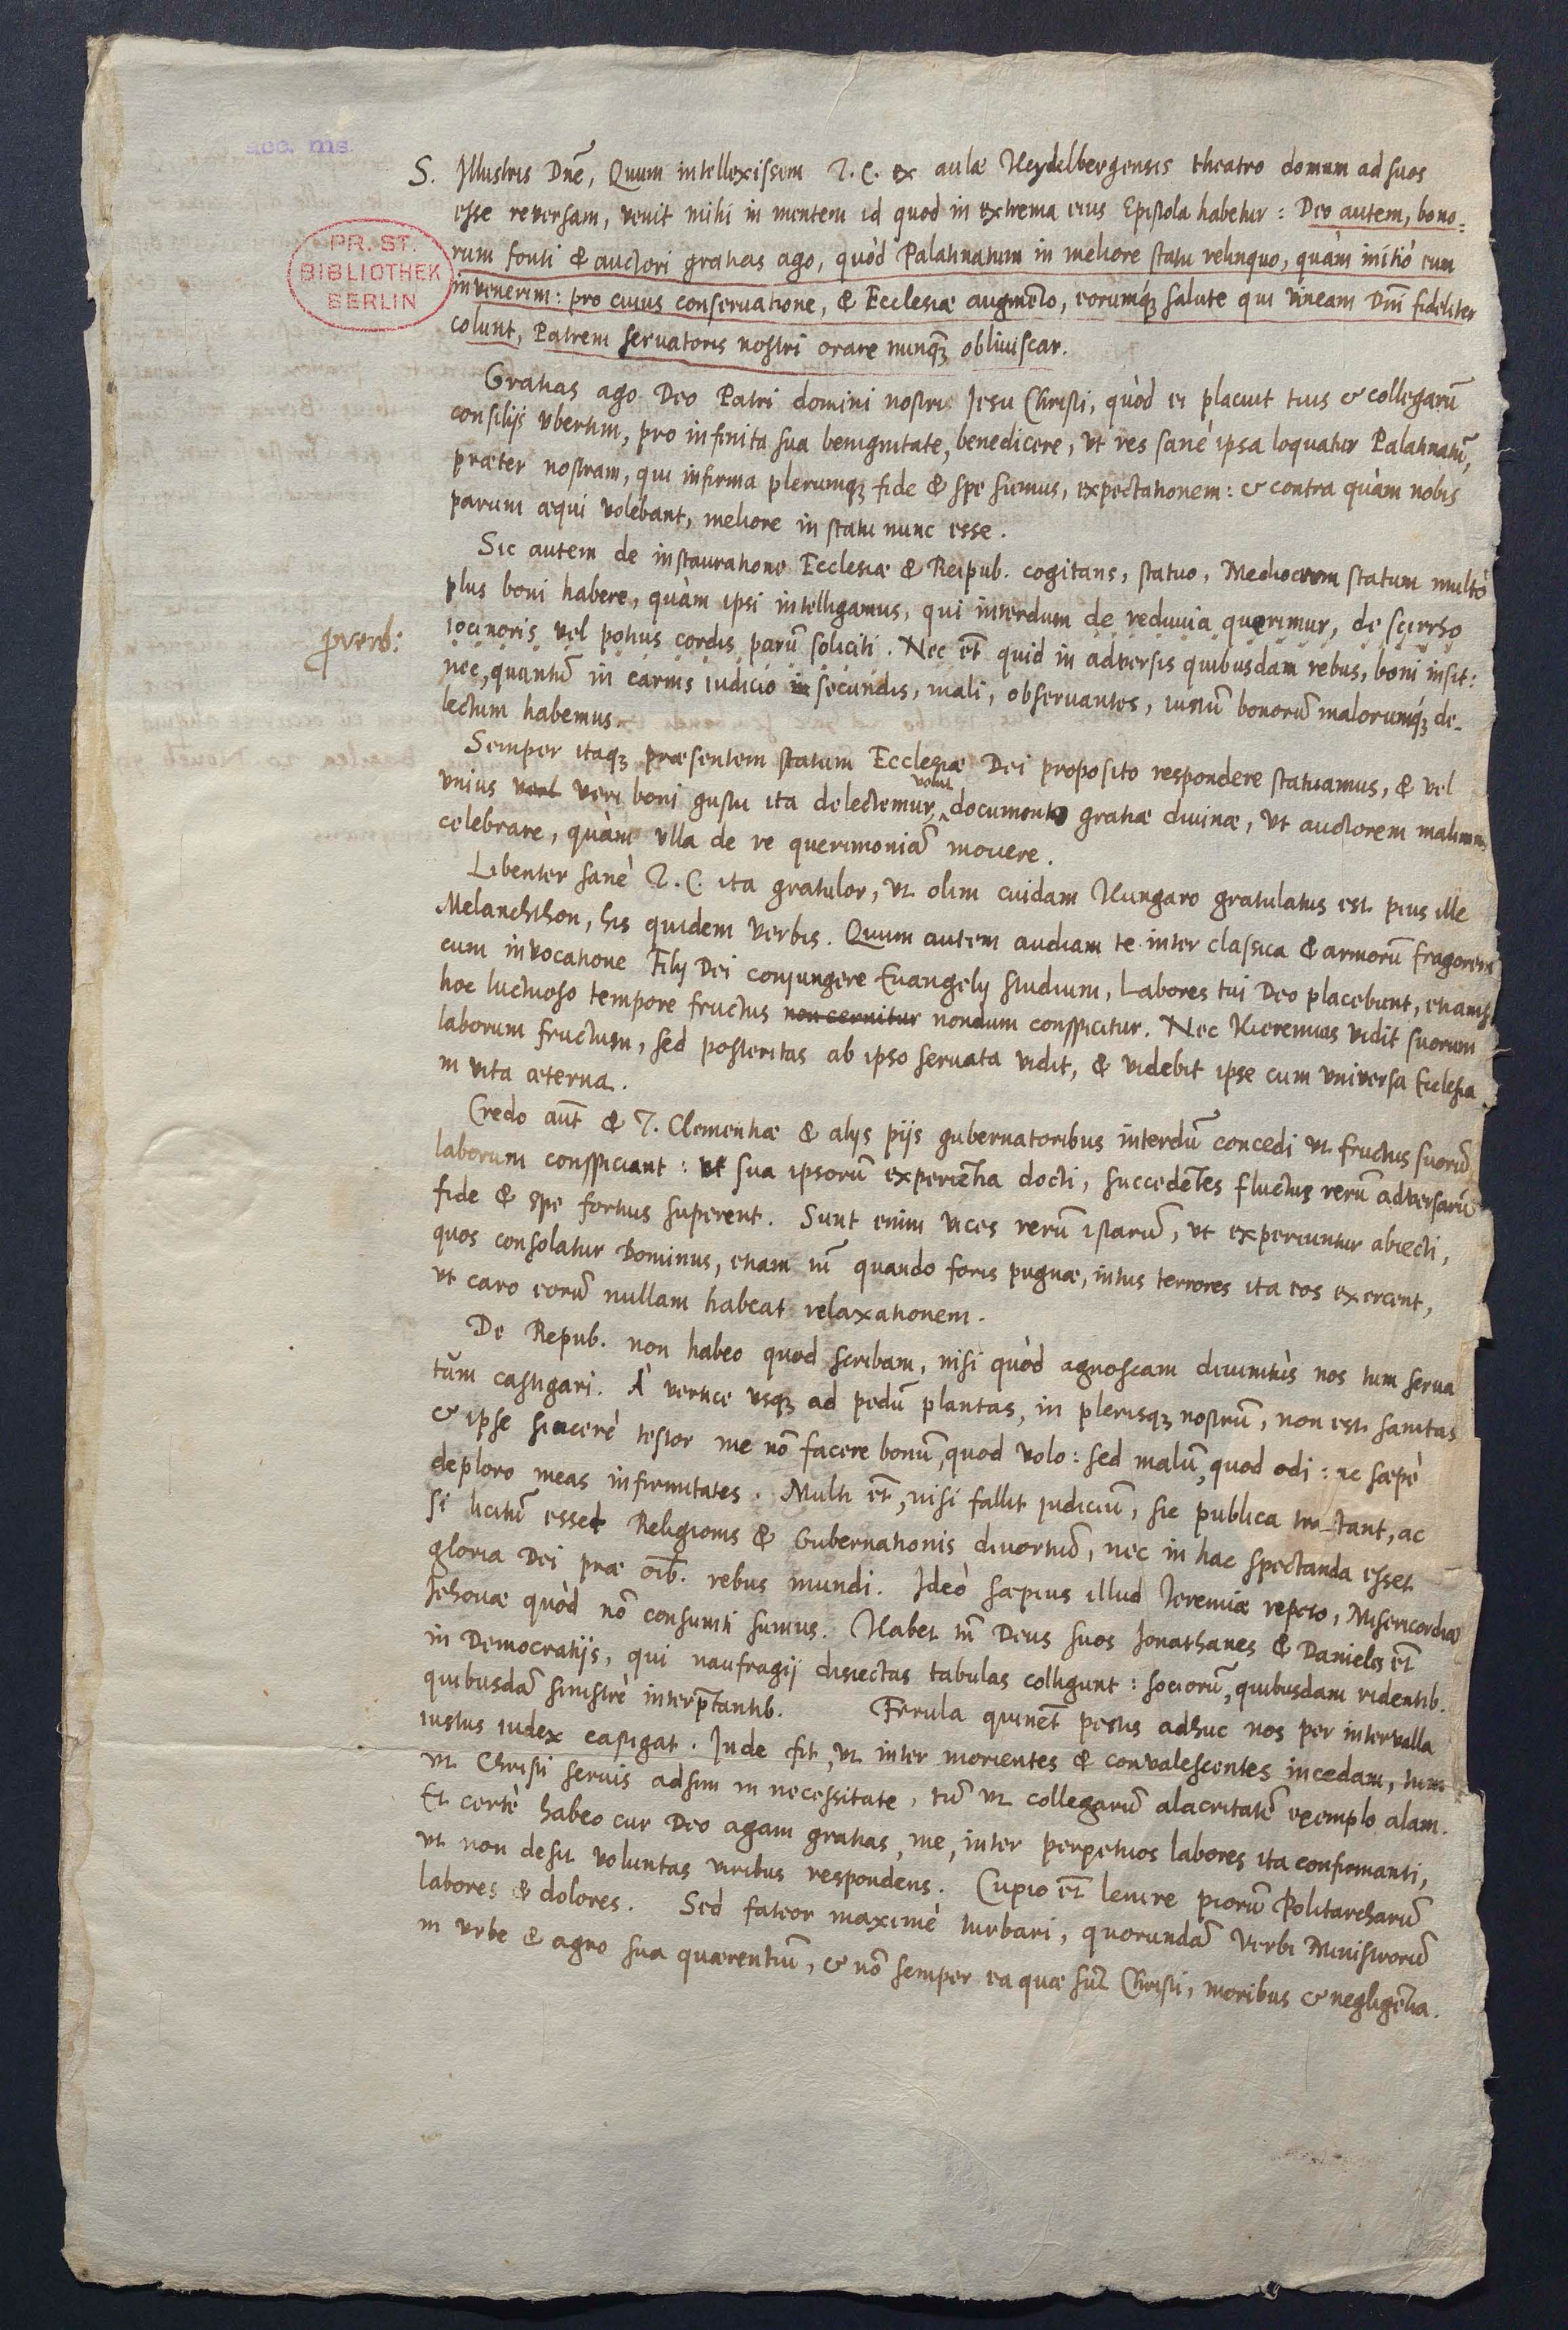 acc. ms.
S. Illustris Dnē, Quum intellexissem T. C. ex aulæ Heydelbergensis theatro domum ad suos
esse reversam, venit mihi in mentem id quod in extrema eius Epistola habetur: Deo autem, bono=
rum fonti & auctori gratias ago, quòd Palatinatum in meliore statu relinquo, quàm initiò eum
invenerim: pro cuius conservatione, & Ecclesiæ augmēto, eorumq₃ salute qui vineam Dnī fideliter
colunt, Patrem servatoris nostri orare nunq̄₃ obliviscar.
PR. ST.
BIBLIOTHEK
BERLIN
Gratias ago Deo Patri domini nostri Jesu Christi, quòd ei placuit tuis & collegarū
consilijs ubertim, pro infinita sua benignitate, benedicere, ut res sanè ipsa loquatur Palatinatū,
præter nostram, qui infirma plerumq₃ fide & spe sumus, expectationem: & contra quàm nobis
parum æqui volebant, meliore in statu nunc esse.
Sic autem de instauratione Ecclesiæ & Reipub. cogitans, statuo, Mediocrem statum multò
plus boni habere, quàm ipsi intelligamus, qui interdum de reduvia querimur, de scirrho
proverb:
iocinoris vel potius cordis parū soliciti. Nec et̄ quid in adversis quibusdam rebus, boni insit:
nec, quantū in carnis iudicio in secundis, mali, observantes, iustū bonorū malorumq₃ de=
lectum habemus.
Semper itaq₃ præsentem statum Ecclesiæ Dei proposito respondere statuamus, & vel
unius veri boni gustu ita delectemur, velut documento gratiæ divinæ, ut auctorem malimus
celebrare, quàm ulla de re querimoniā movere.
Libenter sanè T. C. ita gratulor, ut olim cuidam Hungaro gratulatus est pius ille
Melanchthon, his quidem verbis. Quum autem audiam te inter classica & armorū fragorem
cum invocatione Filij Dei conjungere Evangelij studium, Labores tui Deo placebunt, etiamsi
hoc luctuoso tempore fructus non cernitur nondum conspicitur. Nec Hieremias vidit suorum
laborum fructum, sed posteritas ab ipso servata vidit, & videbit ipse cum universa Ecclesia
in vita æterna.
Credo aūt & T. Clementiæ & alijs pijs gubernatoribus interdū concedi ut fructus suorū
laborum conspiciant: ut sua ipsorū experiētia docti, succedētes fluctus rerū adversarū
fide & spe fortius superent. Sunt enim vices rerū istarū, ut experiuntur abiecti,
quos consolatur Dominus, etiam tū quando foris pugnæ, intus terrores ita eos exercent,
ut caro eorū nullam habeat relaxationem.
De Repub. non habeo quod scribam, nisi quòd agnoscam divinitùs nos tum serva
tum castigari. À vertice usq₃ ad pedū plantas, in plerisq₃ nostrū, non est sanitas
& ipse sincerè testor me nō facere bonū, quod volo: sed malū, quod odi: ac sæpè
deploro meas infirmitates. Multi et̄, nisi fallit judiciū, sic publica tractant, ac
si licitū esset Religionis & Gubernationis divortiū, nec in hac spectanda esset
gloria Dei præ oīb. rebus mundi. Ideò sæpius illud Ieremiæ repeto, Misericordiæ
Jehovæ quòd nō consumti sumus. Habet tn̄ Deus suos Jonathanes & Danieles et̄
in Democratijs, qui naufragij disiectas tabulas colligunt: sociorū, quibusdam ridentib.
quibusdā sinistrè interp̄tantib. Ferula quinet̄ pestis adhuc nos per intervalla
iustus iudex castigat. Inde fit, ut inter morientes & convalescentes incedam, tum
ut Christi servis adsim in necessitate, tū ut collegarū alacritatē exemplo alam.
Et certè habeo cur Deo agam gratias, me, inter perpetuos labores ita confirmanti,
ut non desit voluntas viribus respondens. Cupio et̄ lenire piorū Politarcharū
labores & dolores. Sed fateor maximè turbari, quorundā Verbi Ministrorū
in urbe & agro sua quærentiū, & nō semper ea quæ sūt Christi, moribus & negligētia.